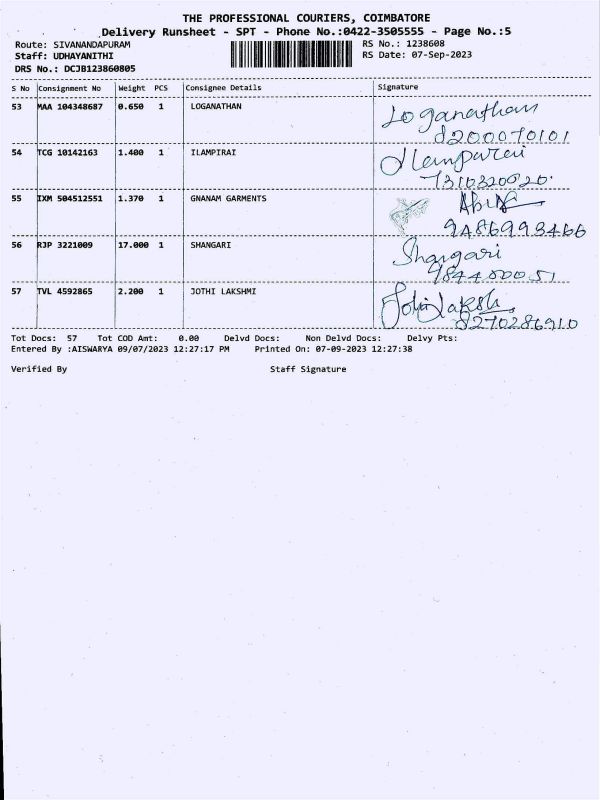 THE PROFESSIONAL COURIERS, COIMBATORE
Delivery Runsheet - SPT - Phone No.:0422-3505555 - Page No.:5
Route: SIVANANDAPURAM RS No.: 1238608
Staff: UDHAYANITHI RS Date: 07-Sep-2023
DRS No.: DCJB123860805
S No Consignment No Weight PCS Consignee Details Signature
53 MAA 104348687 0.650 1 LOGANATHAN Loganathan
8200070101
54 TCG 10142163 1.400 1 ILAMPIRAI
7310320020
55 IXM 504512551 1.370 1 GNANAM GARMENTS
9486993466
56 RJP 3221009 17.000 1 SHANGARI Shangari
57 TVL 4592865 2.200 1 JOTHI LAKSHMI
8270286910
Tot Docs: 57 Tot COD Amt: 0.00 Delvd Docs: Non Delvd Docs: Delvy Pts:
Entered By :AISWARYA 09/07/2023 12:27:17 PM Printed On: 07-09-2023 12:27:38
Verified By Staff Signature